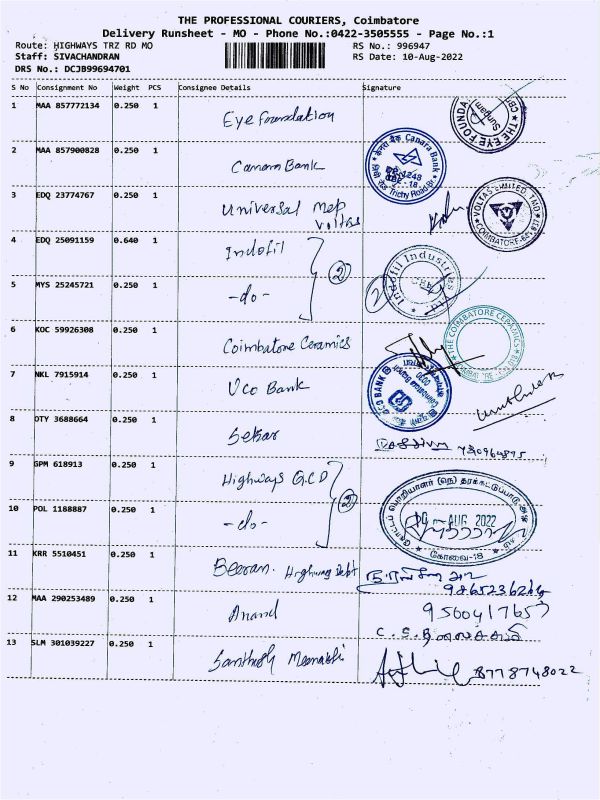 THE PROFESSIONAL COURIERS, Coimbatore
Delivery Runsheet - MO - Phone No.:0422-3505555 - Page No.:1
Route: HIGHWAYS TRZ RD MO RS No.: 996947
Staff: SIVACHANDRAN RS Date: 10-Aug-2022
DRS No.: DCJB99694701
S No Consignment No Weight PCS Consignee Details Signature
1 MAA 857772134 0.250 1 Eye Foundation
THE EYE FOUNDA
Sungam
2 MAA 857900828 0.250 1 Canara Bank
Canara Bank
Trichy Road Br
3 EDQ 23774767 0.250 1 Universal Mep
Voltas
VOLTAS LIMITED
COIMBATORE-641
4 EDQ 25091159 0.640 1 Indofil
2
Indofil Industries Ltd
5 MYS 25245721 0.250 1 -do-
2
6 KOC 59926308 0.250 1 Coimbatore Ceramics
THE COIMBATORE CERAMICS
7 NKL 7915914 0.250 1 Uco Bank
UCO BANK
8 OTY 3688664 0.250 1 Sekar
9 GPM 618913 0.250 1 Highways Q.C.D
2
10 POL 1188887 0.250 1 -do-
10 AUG 2022
கோவை-18
11 KRR 5510451 0.250 1 Highway Dept
12 MAA 290253489 0.250 1 Anand
9560417657
13 SLM 301039227 0.250 1 Santhosh Meenakshi
8778748022